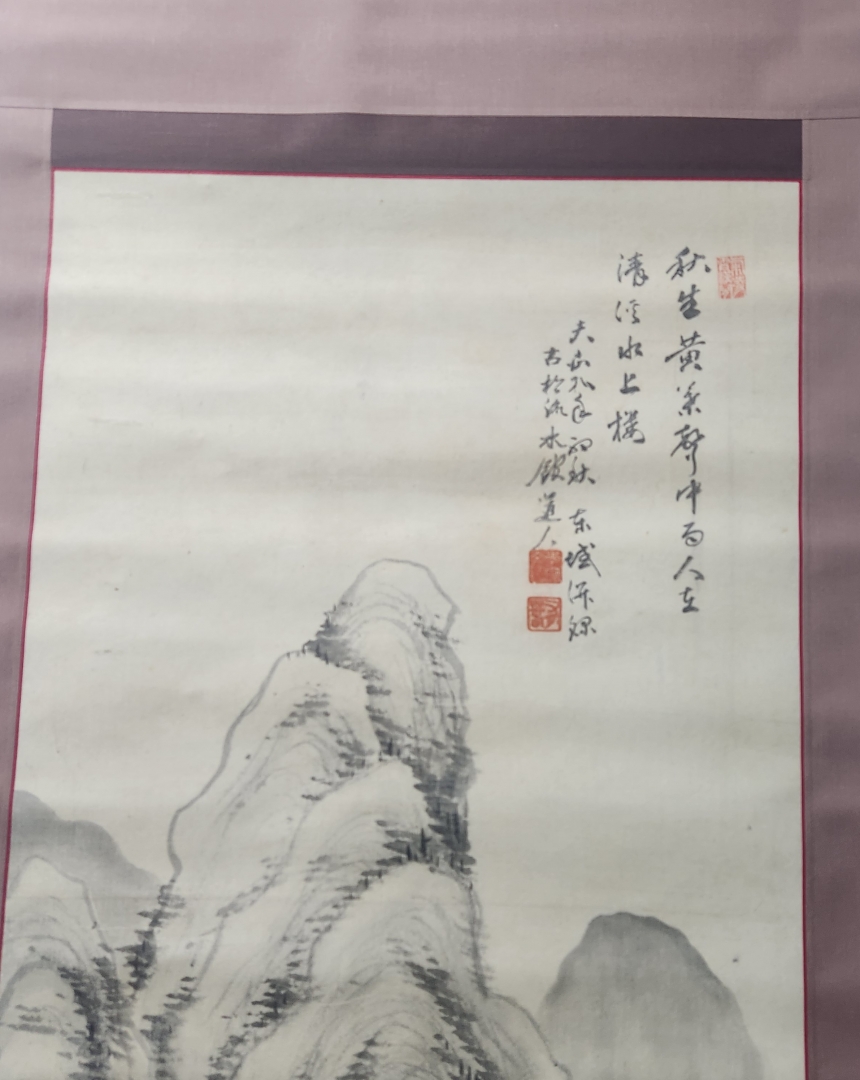 秋生黄葉聲中雨人在
清溪水上樓
大正九年初秋 東城
古松流水館道人